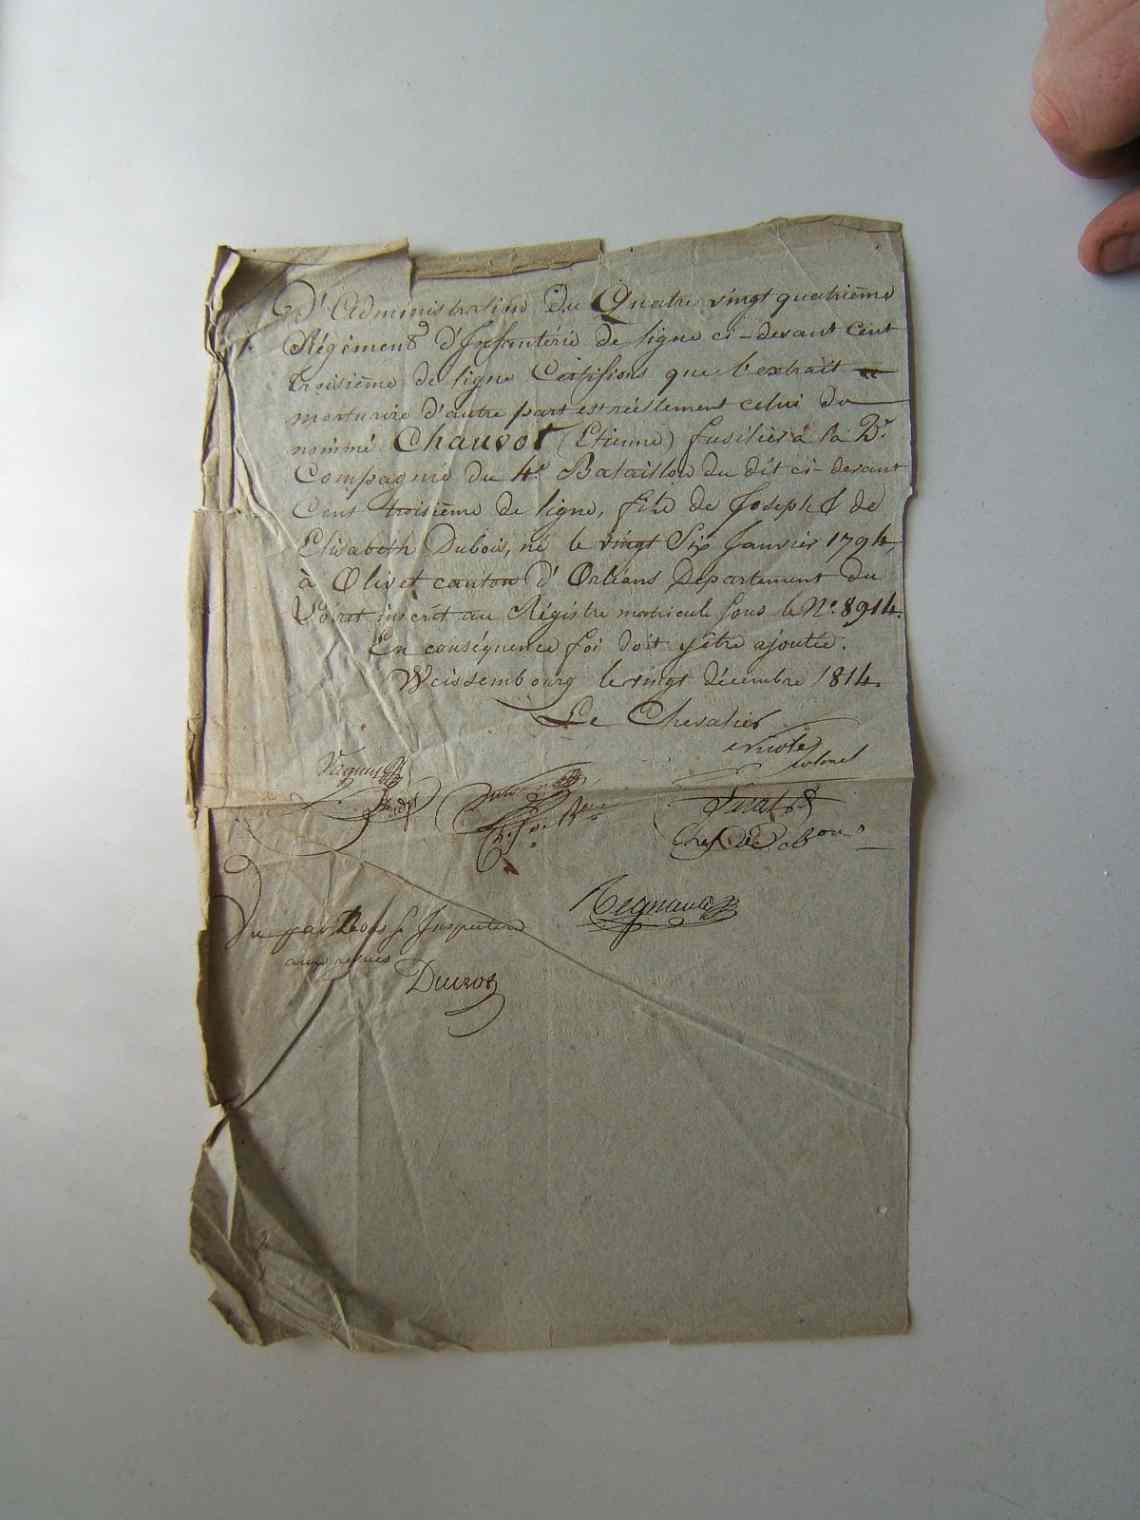 D'Administration du Quatre vingt quatrième
Régiment d'Infanterie de ligne ci-devant cent
troisième de ligne Certifions que l'extrait
mortuaire d'autre part est réellement celui du
nommé Chauvot (Etienne) fusilier à la
Compagnie du 4e Bataillon du dit ci-devant
Cent troisième de ligne, fils de Joseph & de
Elisabeth Dubois, né le vingt Six Janvier 1794,
à Olivet canton d'Orléans Département du
Loiret inscrit au Régistre matricule sous le No. 8914.
En conséquence foi doit y être ajoutée.
Weissembourg le vingt décembre 1814.
Le Chevalier
Colonel
Chef de Bon
Regnault
Vu par Nous S. Inspecteur
aux revues
Ducrot